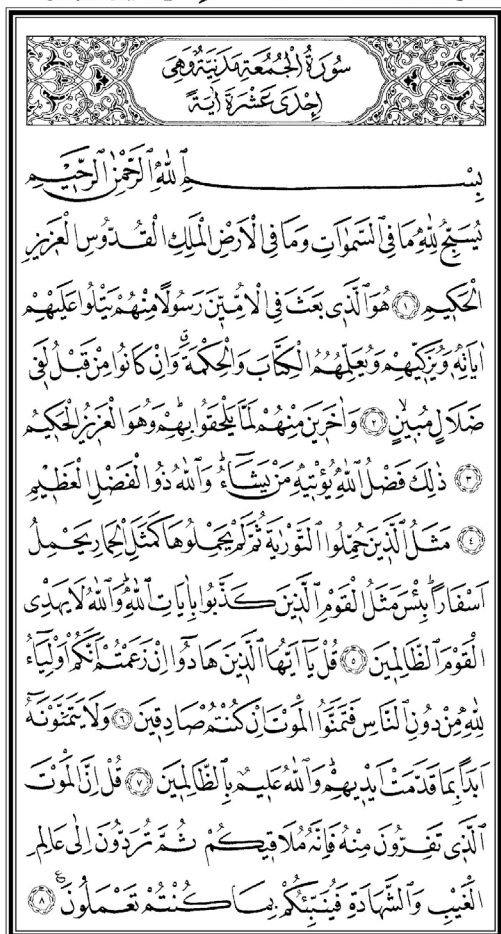 سُورَةُ الْجُمُعَةِ مَدَنِيَّةٌ وَهِيَ
اِحْدٰى عَشْرَةَ اٰيَةً
بِسْمِ اللّٰهِ الرَّحْمٰنِ الرَّحِيمِ
يُسَبِّحُ لِلّٰهِ مَا فِي السَّمٰوَاتِ وَمَا فِي الْاَرْضِ الْمَلِكِ الْقُدُّوسِ الْعَزِيزِ
الْحَكِيمِ ﴿١﴾ هُوَ الَّذِي بَعَثَ فِي الْاُمِّيِّنَ رَسُولًا مِنْهُمْ يَتْلُوا عَلَيْهِمْ
اٰيَاتِهِ وَيُزَكِّيهِمْ وَيُعَلِّمُهُمُ الْكِتَابَ وَالْحِكْمَةَ وَاِنْ كَانُوا مِنْ قَبْلُ لَفِي
ضَلَالٍ مُبِينٍ ﴿٢﴾ وَاٰخَرِينَ مِنْهُمْ لَمَّا يَلْحَقُوا بِهِمْ وَهُوَ الْعَزِيزُ الْحَكِيمُ
﴿٣﴾ ذٰلِكَ فَضْلُ اللّٰهِ يُؤْتِيهِ مَنْ يَشَاءُ وَاللّٰهُ ذُو الْفَضْلِ الْعَظِيمِ
﴿٤﴾ مَثَلُ الَّذِينَ حُمِّلُوا التَّوْرٰيةَ ثُمَّ لَمْ يَحْمِلُوهَا كَمَثَلِ الْحِمَارِ يَحْمِلُ
اَسْفَارًا بِئْسَ مَثَلُ الْقَوْمِ الَّذِينَ كَذَّبُوا بِاٰيَاتِ اللّٰهِ وَاللّٰهُ لَا يَهْدِي
الْقَوْمَ الظَّالِمِينَ ﴿٥﴾ قُلْ يَا اَيُّهَا الَّذِينَ هَادُوا اِنْ زَعَمْتُمْ اَنَّكُمْ اَوْلِيَاءُ
لِلّٰهِ مِنْ دُونِ النَّاسِ فَتَمَنَّوُا الْمَوْتَ اِنْ كُنْتُمْ صَادِقِينَ ﴿٦﴾ وَلَا يَتَمَنَّوْنَهُ
اَبَدًا بِمَا قَدَّمَتْ اَيْدِيهِمْ وَاللّٰهُ عَلِيمٌ بِالظَّالِمِينَ ﴿٧﴾ قُلْ اِنَّ الْمَوْتَ
الَّذِي تَفِرُّونَ مِنْهُ فَاِنَّهُ مُلَاقِيكُمْ ثُمَّ تُرَدُّونَ اِلٰى عَالِمِ
الْغَيْبِ وَالشَّهَادَةِ فَيُنَبِّئُكُمْ بِمَا كُنْتُمْ تَعْمَلُونَ ﴿٨﴾